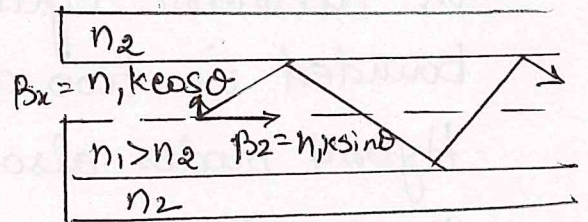 n₂
βx = n₁kcosθ
n₁>n₂ β₂=n₁ksinθ
n₂